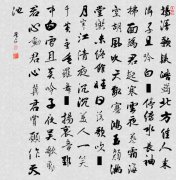 揚清歌發皓齒北方佳人東
鄰子且吟白■停綠水長袖
拂面為君起寒雲夜卷霜海空
胡風吹天飄塞鴻玉顏滿
堂樂未終館娃日落歌吹■
月寒江清夜沉沉美人一笑
千黃金垂羅舞■揚哀音郢
中白雪且莫吟子夜吳歌動
君心動君心冀君賞願作天
池